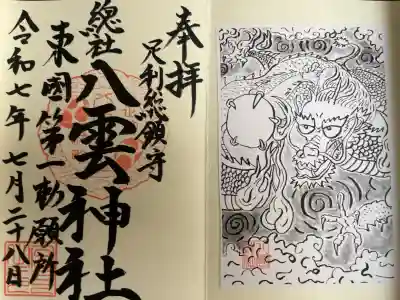 奉拝
足利総鎮守
總社八雲神社
東國第一勅願所
令和七年七月二十八日